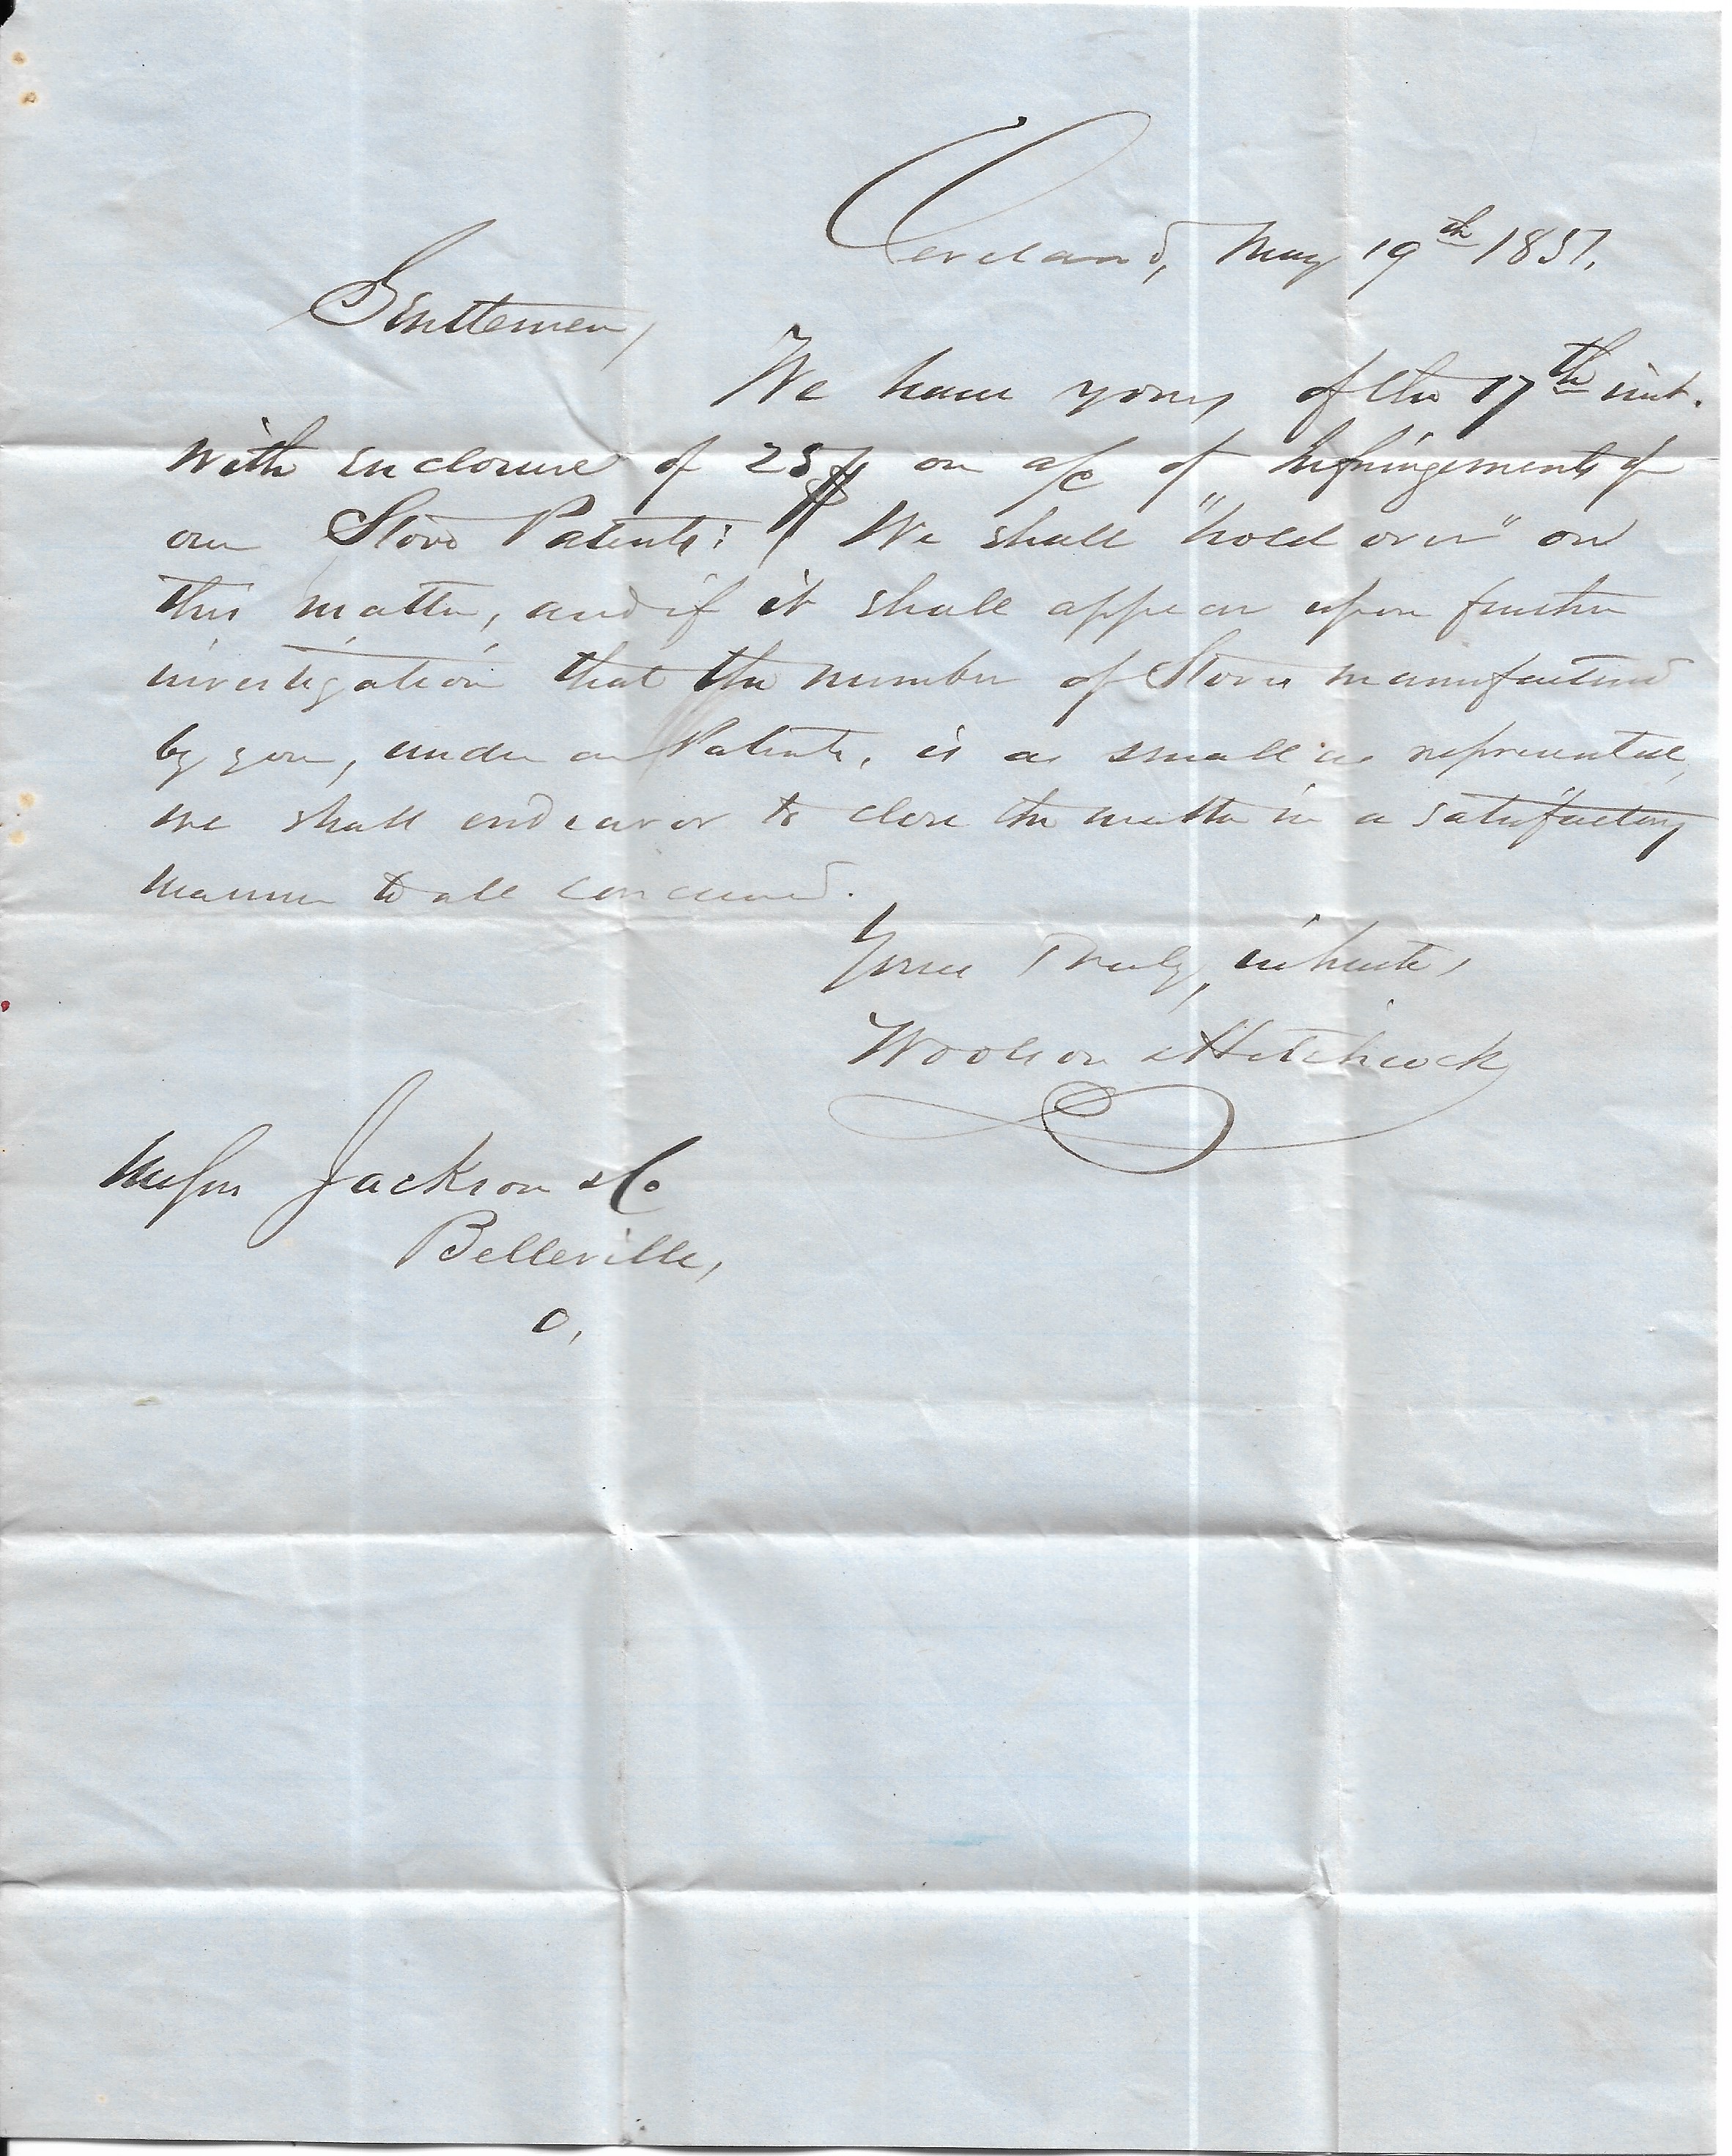 Cleveland, May 19th 1857.
Gentlemen,
We have yours of the 17th inst.
with enclosure of 25$ on a/c of infringements of
our Stove Patents: We shall "hold over" on
this matter, and if it shall appear upon further
investigation that the number of Stoves manufactured
by you, under our Patents, is as small as represented,
we shall endeavor to close the matter in a satisfactory
manner to all concerned.
Yours Truly, in haste,
Woolson & Hitchcock
Messrs Jackson & Co
Belleville,
O,